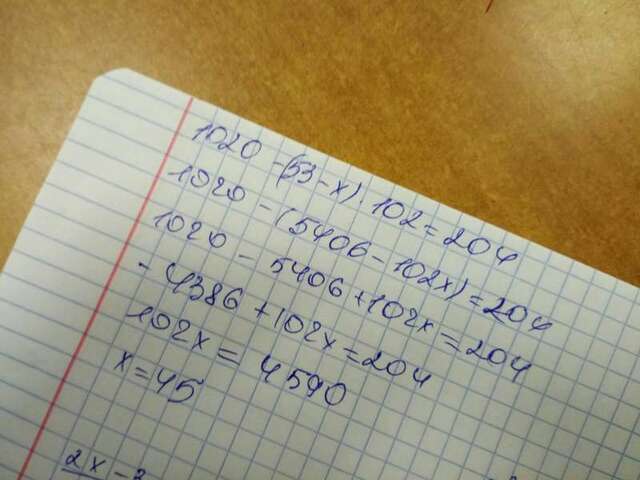 1020 - (53 - x) · 102 = 204
1020 - (5406 - 102x) = 204
1020 - 5406 + 102x = 204
- 4386 + 102x = 204
102x = 4590
x = 45
2x - 3